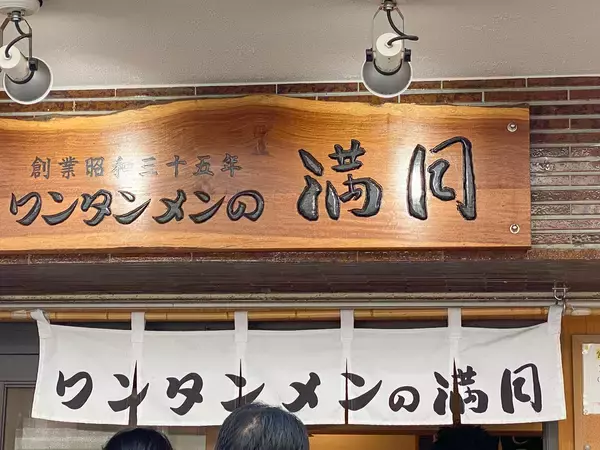 創業昭和三十五年
ワンタンメンの 満月
ワンタンメンの満月